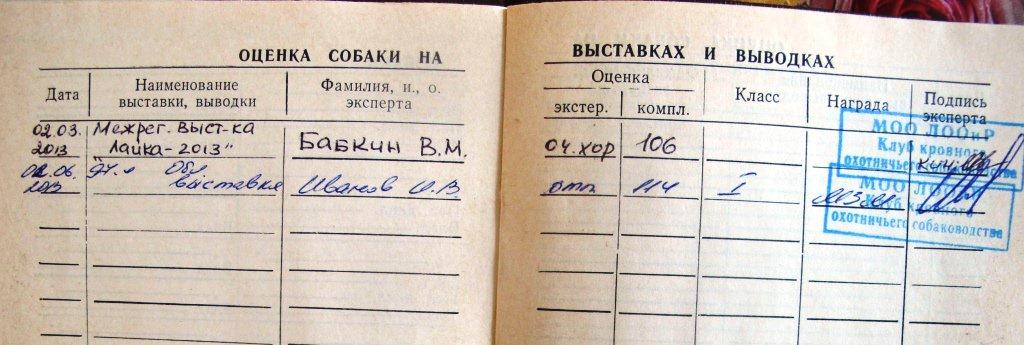 ОЦЕНКА СОБАКИ НА ВЫСТАВКАХ И ВЫВОДКАХ
Дата Наименование выставки, выводки Фамилия, и., о. эксперта Оценка экстер. компл. Класс Награда Подпись эксперта
02.03. 2013 Межрег. выст-ка "Лайка-2013" Бабкин В.М. оч.хор 106
02.06. 2013 97.я Обл выставка Иванов И.В отл. 114 I
МОО ЛООиР
Клуб кровного
охотничьего
МОО
Клуб кровного
охотничьего собаководства